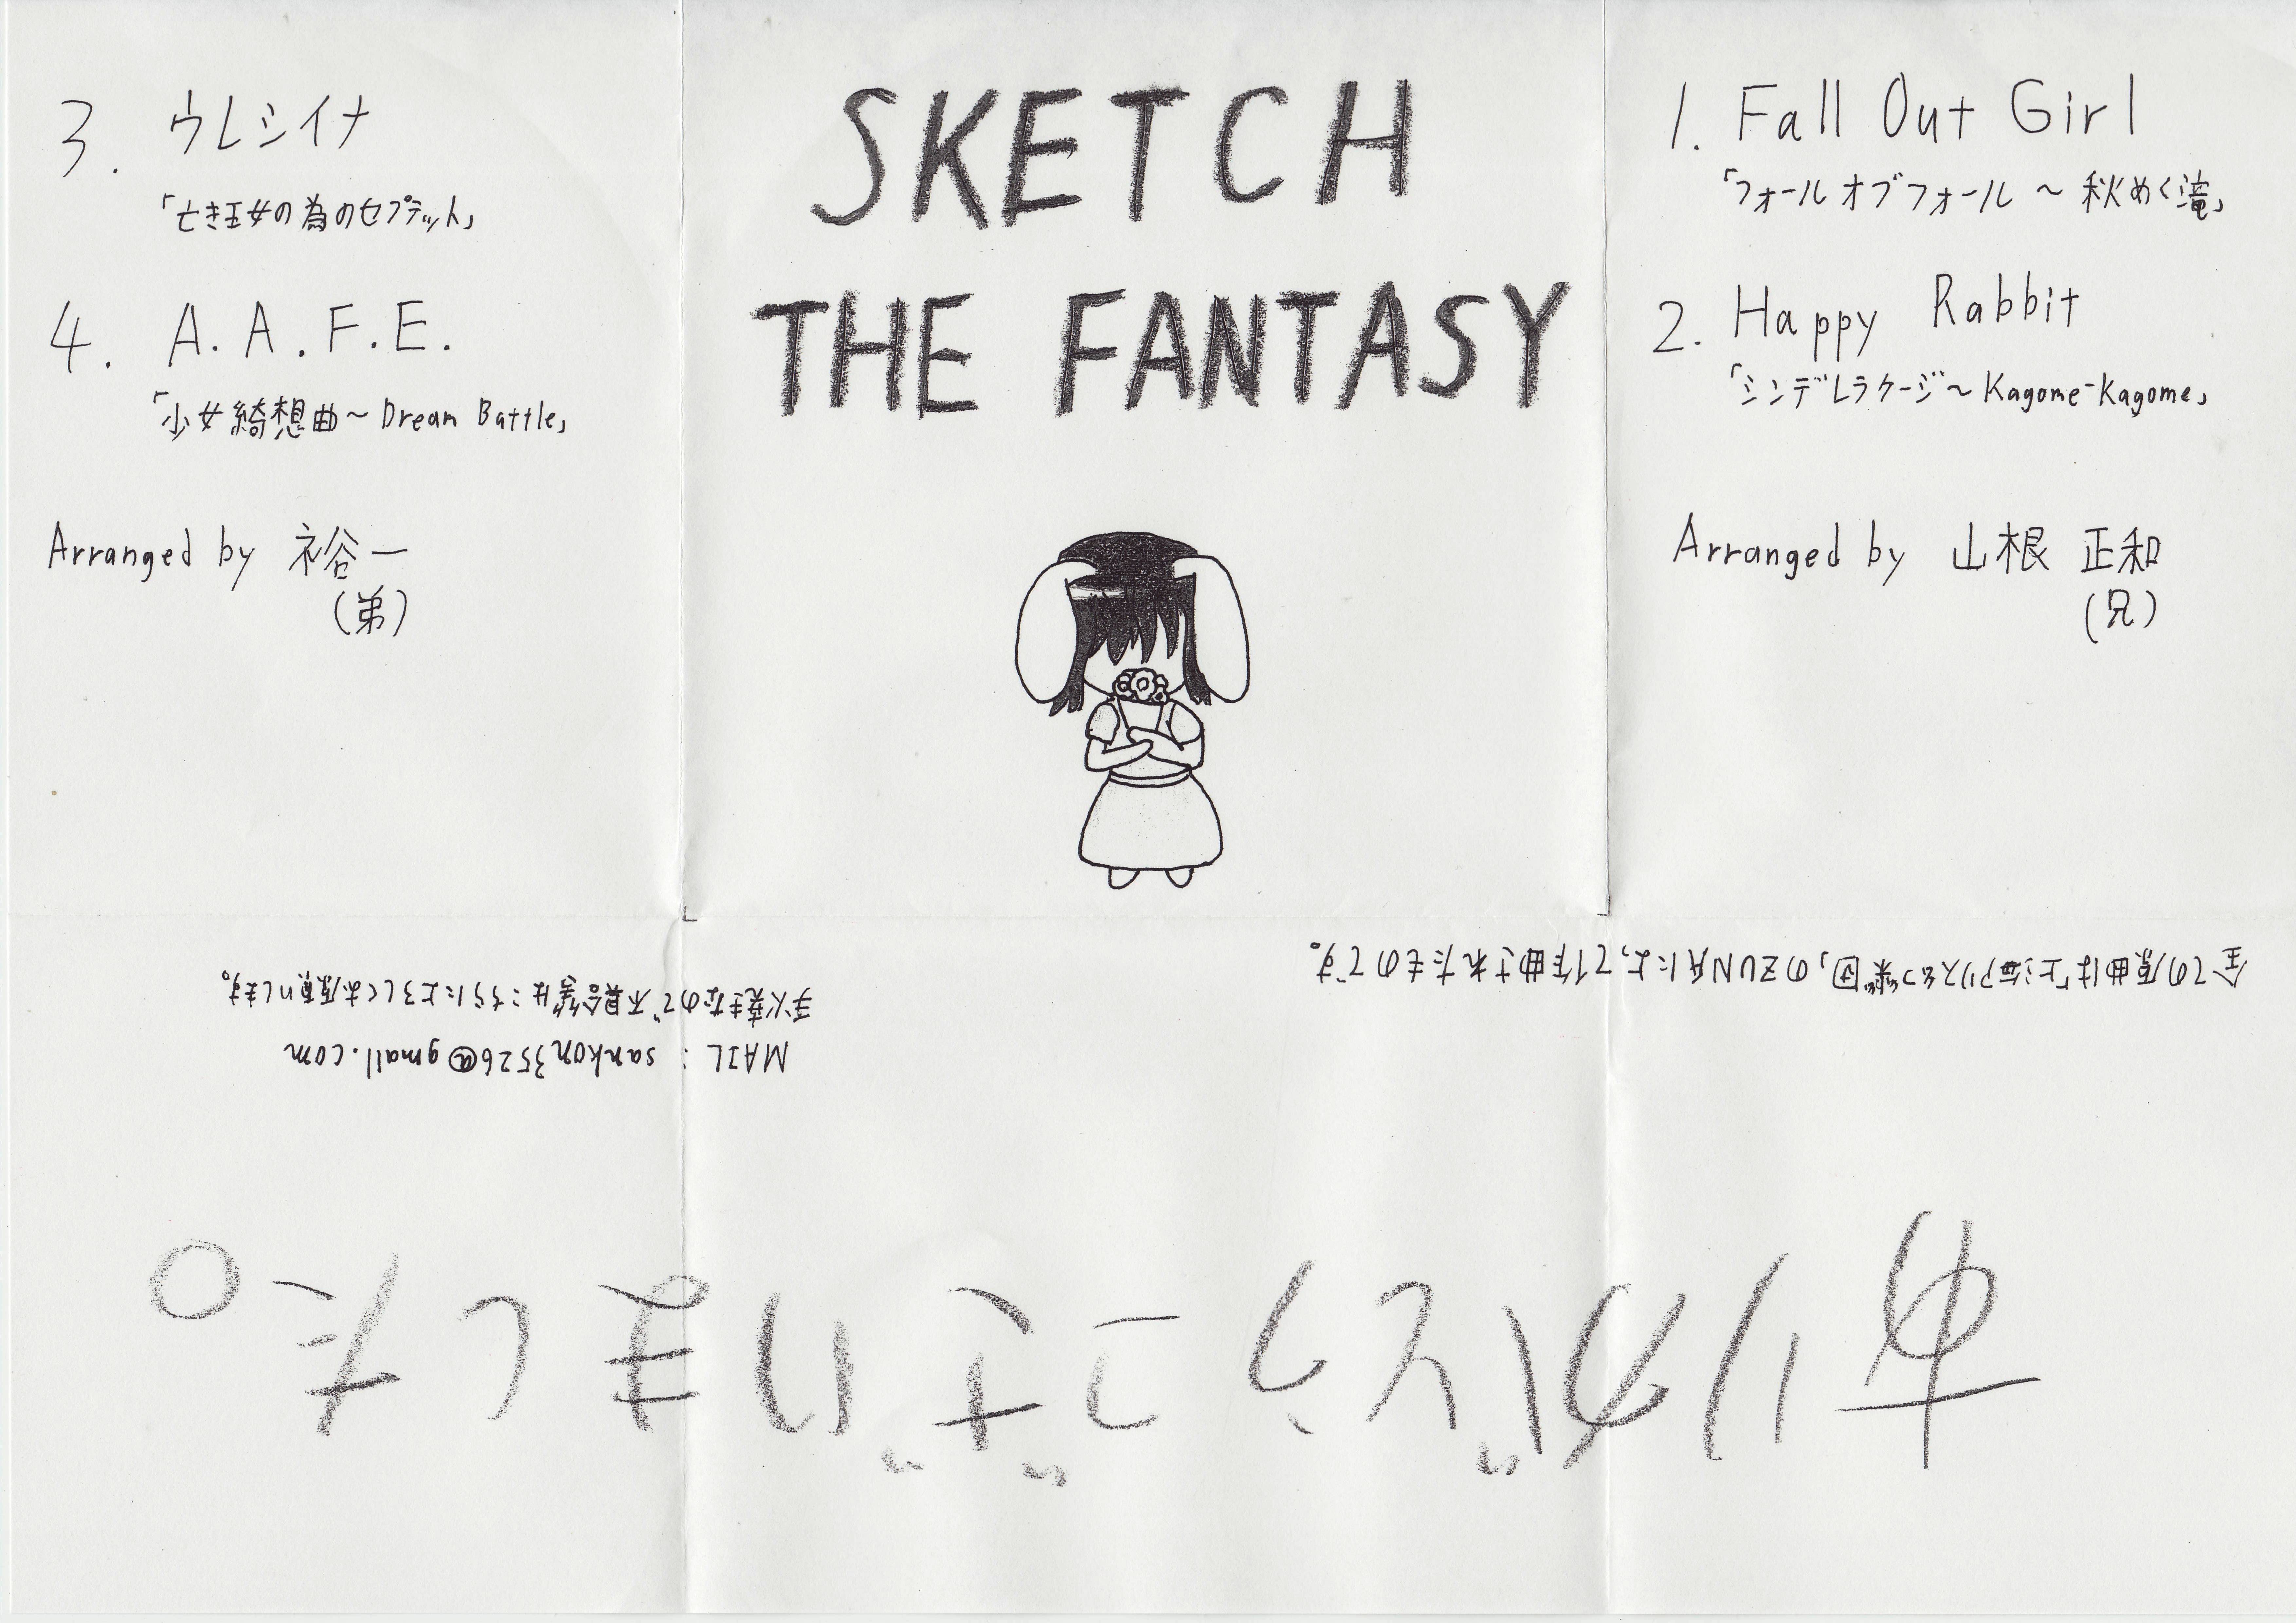 SKETCH
THE FANTASY
1. Fall Out Girl
「フォールオブフォール 〜 秋めく滝」
2. Happy Rabbit
「シンデレラケージ〜 Kagome-Kagome」
Arranged by 山根 正和
(兄)
3. ウレシイナ
「亡き王女の為のセプテット」
4. A.A.F.E.
「少女綺想曲〜 Dream Battle」
Arranged by 裕一
(弟)
ありがとうございました。
全ての原曲は「上海アリス幻樂団」のZUN氏によって作曲されたものです。
手焼きなので不具合等はこちらによろしくお願いします。
MAIL : sankon3526@gmail.com